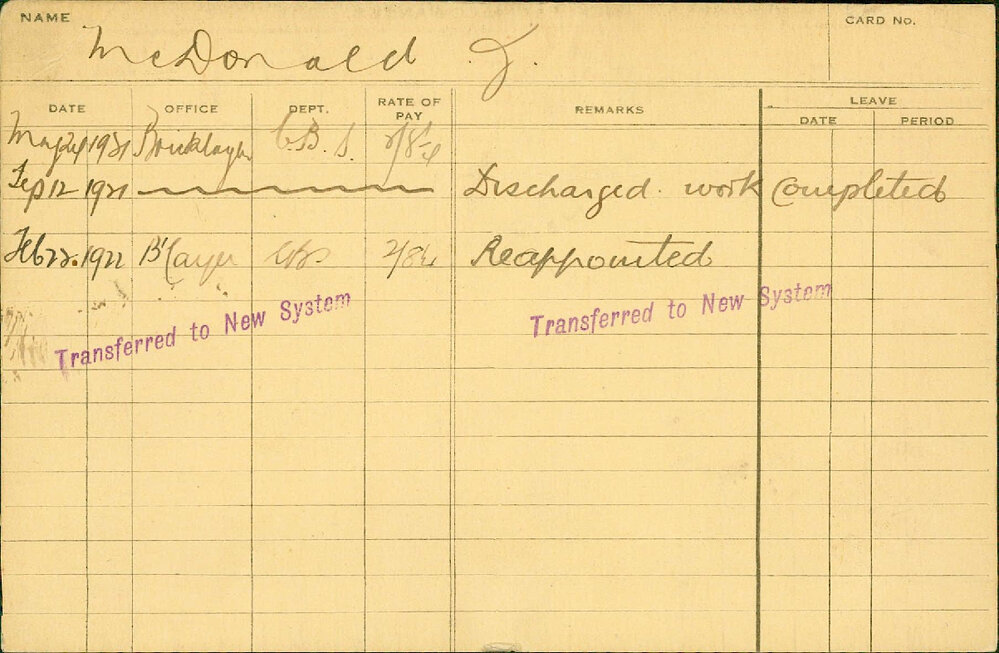 NAME McDonald J. CARD No.
DATE OFFICE DEPT. RATE OF PAY REMARKS LEAVE
DATE PERIOD
May 24 1921 Bricklayer C.B.S.
Sep 12 1921 Discharged. work completed
Feb 22. 1922 B'layer Reappointed
Transferred to New System Transferred to New System